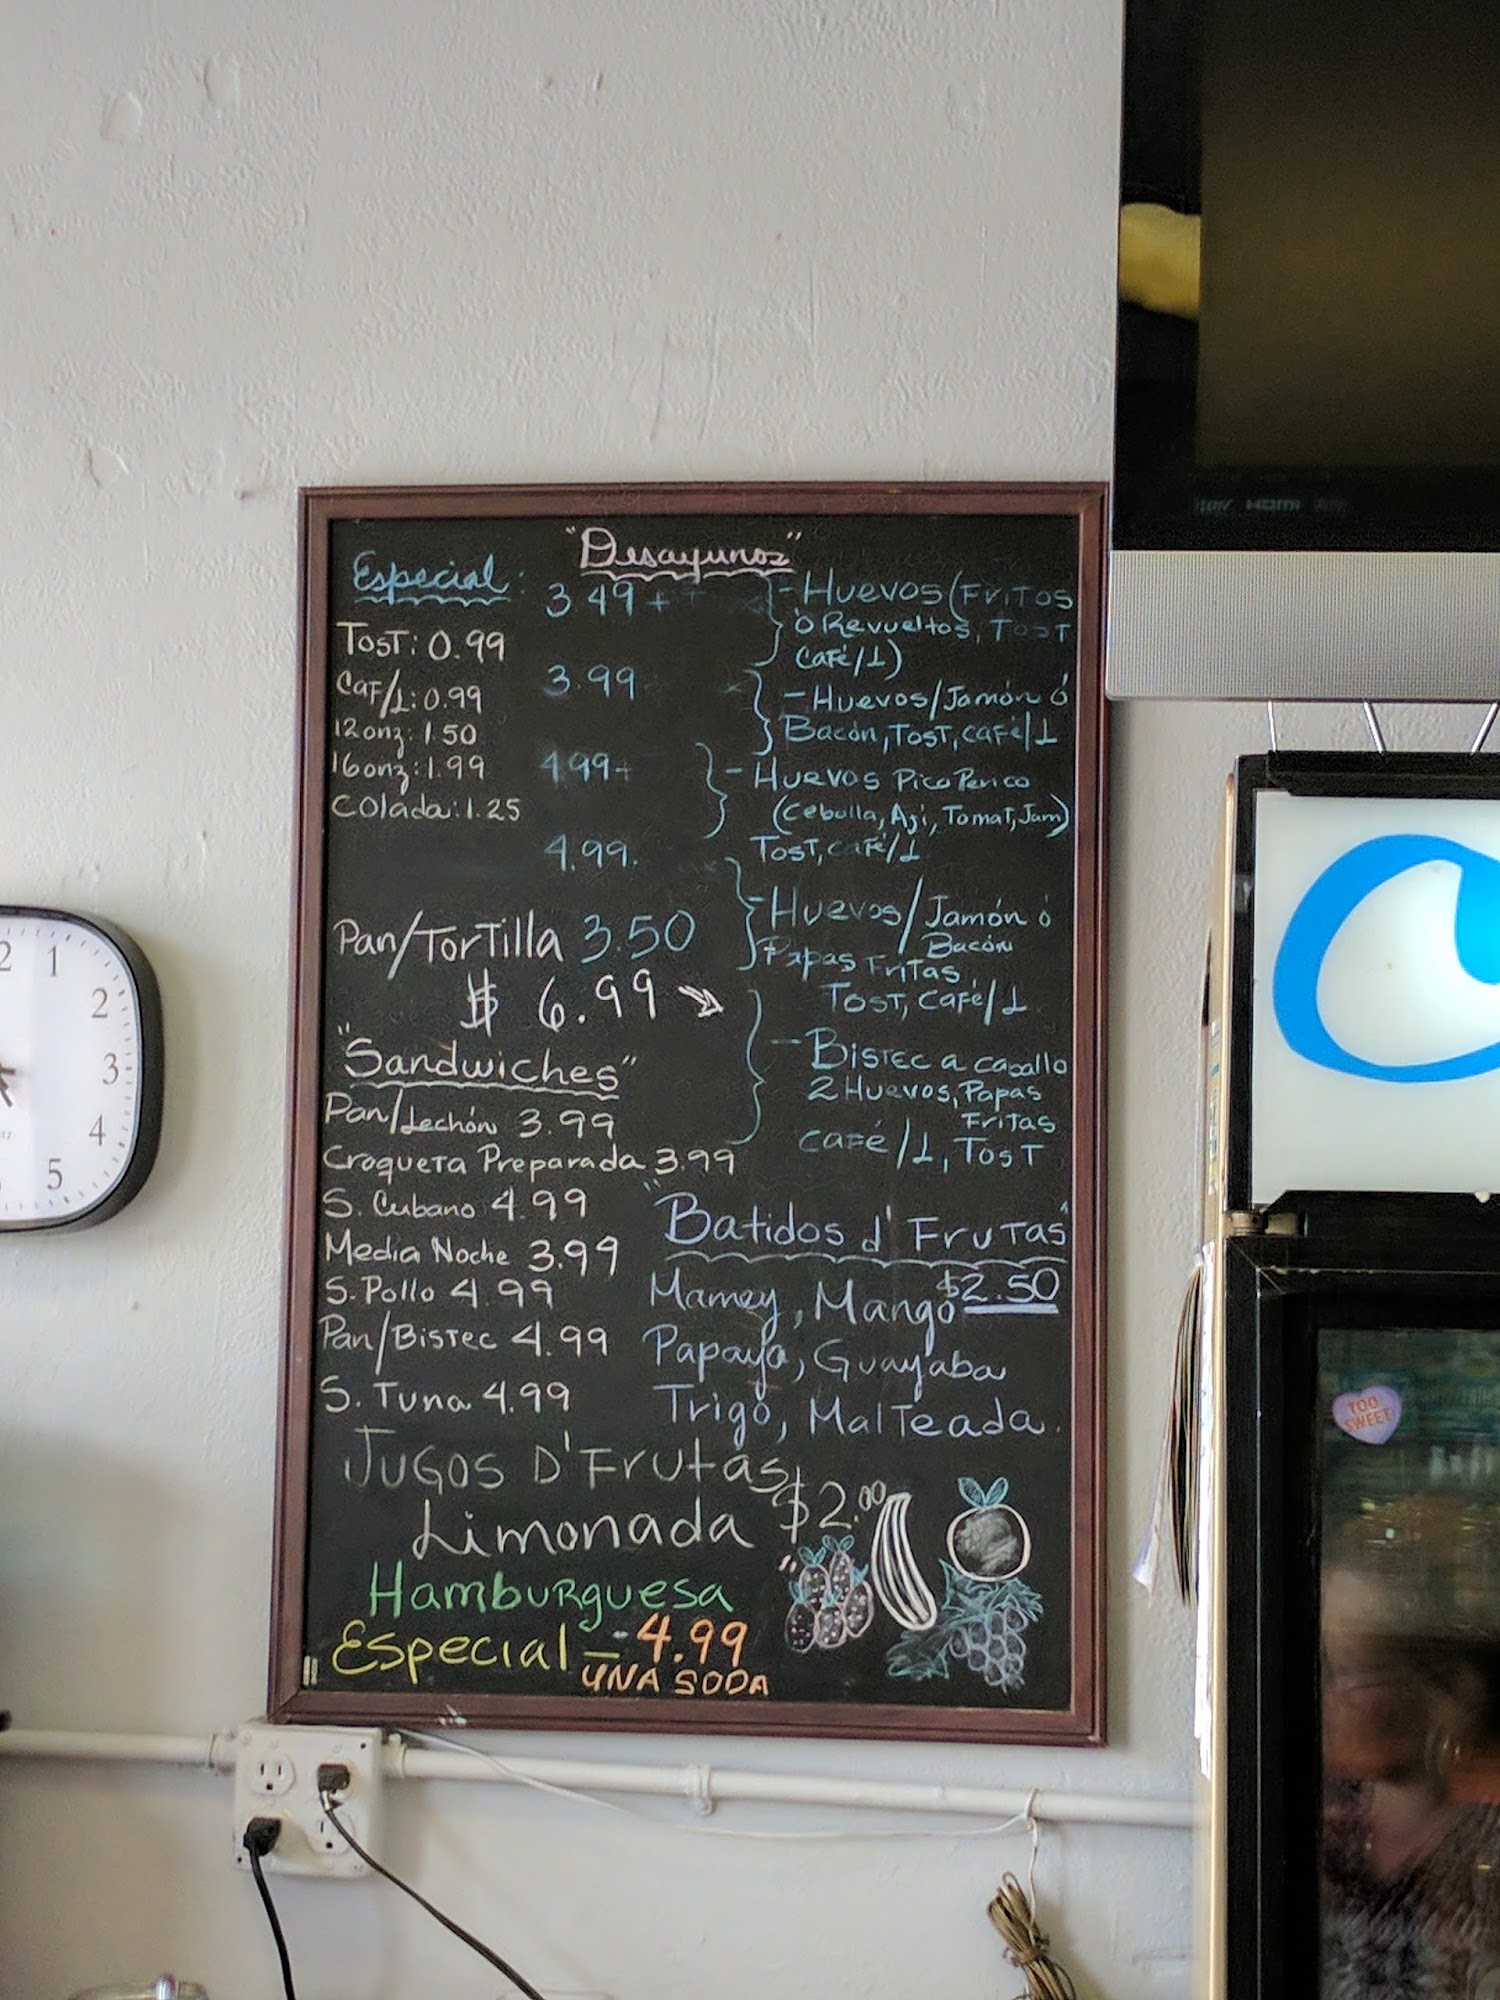 "Desayunos"
Especial:
3.49 +
- Huevos (Fritos
ó Revueltos, Tost
Café/L)
Tost: 0.99
Caf/L: 0.99
12 onz: 1.50
16 onz: 1.99
Colada: 1.25
3.99
- Huevos/Jamón ó
Bacón, Tost, café/L
4.99+
- Huevos Pico Perico
(Cebolla, Aji, Tomat, Jam)
Tost, café/L
4.99.
- Huevos/Jamón ó
Bacón
Papas Fritas
Tost, café/L
Pan/Tortilla 3.50
$ 6.99
- Bistec a caballo
2 Huevos, Papas
Fritas
café/L, Tost
"Sandwiches"
Pan/Lechón 3.99
Croqueta Preparada 3.99
S. Cubano 4.99
Media Noche 3.99
S. Pollo 4.99
Pan/Bistec 4.99
S. Tuna 4.99
"Batidos d' Frutas"
$2.50
Mamey, Mango
Papaya, Guayaba
Trigo, Malteada.
Jugos D' Frutas
Limonada $2.00
Hamburguesa
Especial - 4.99
UNA SODA
2 1
2
3
4
5
HDMI
TOO
SWEET